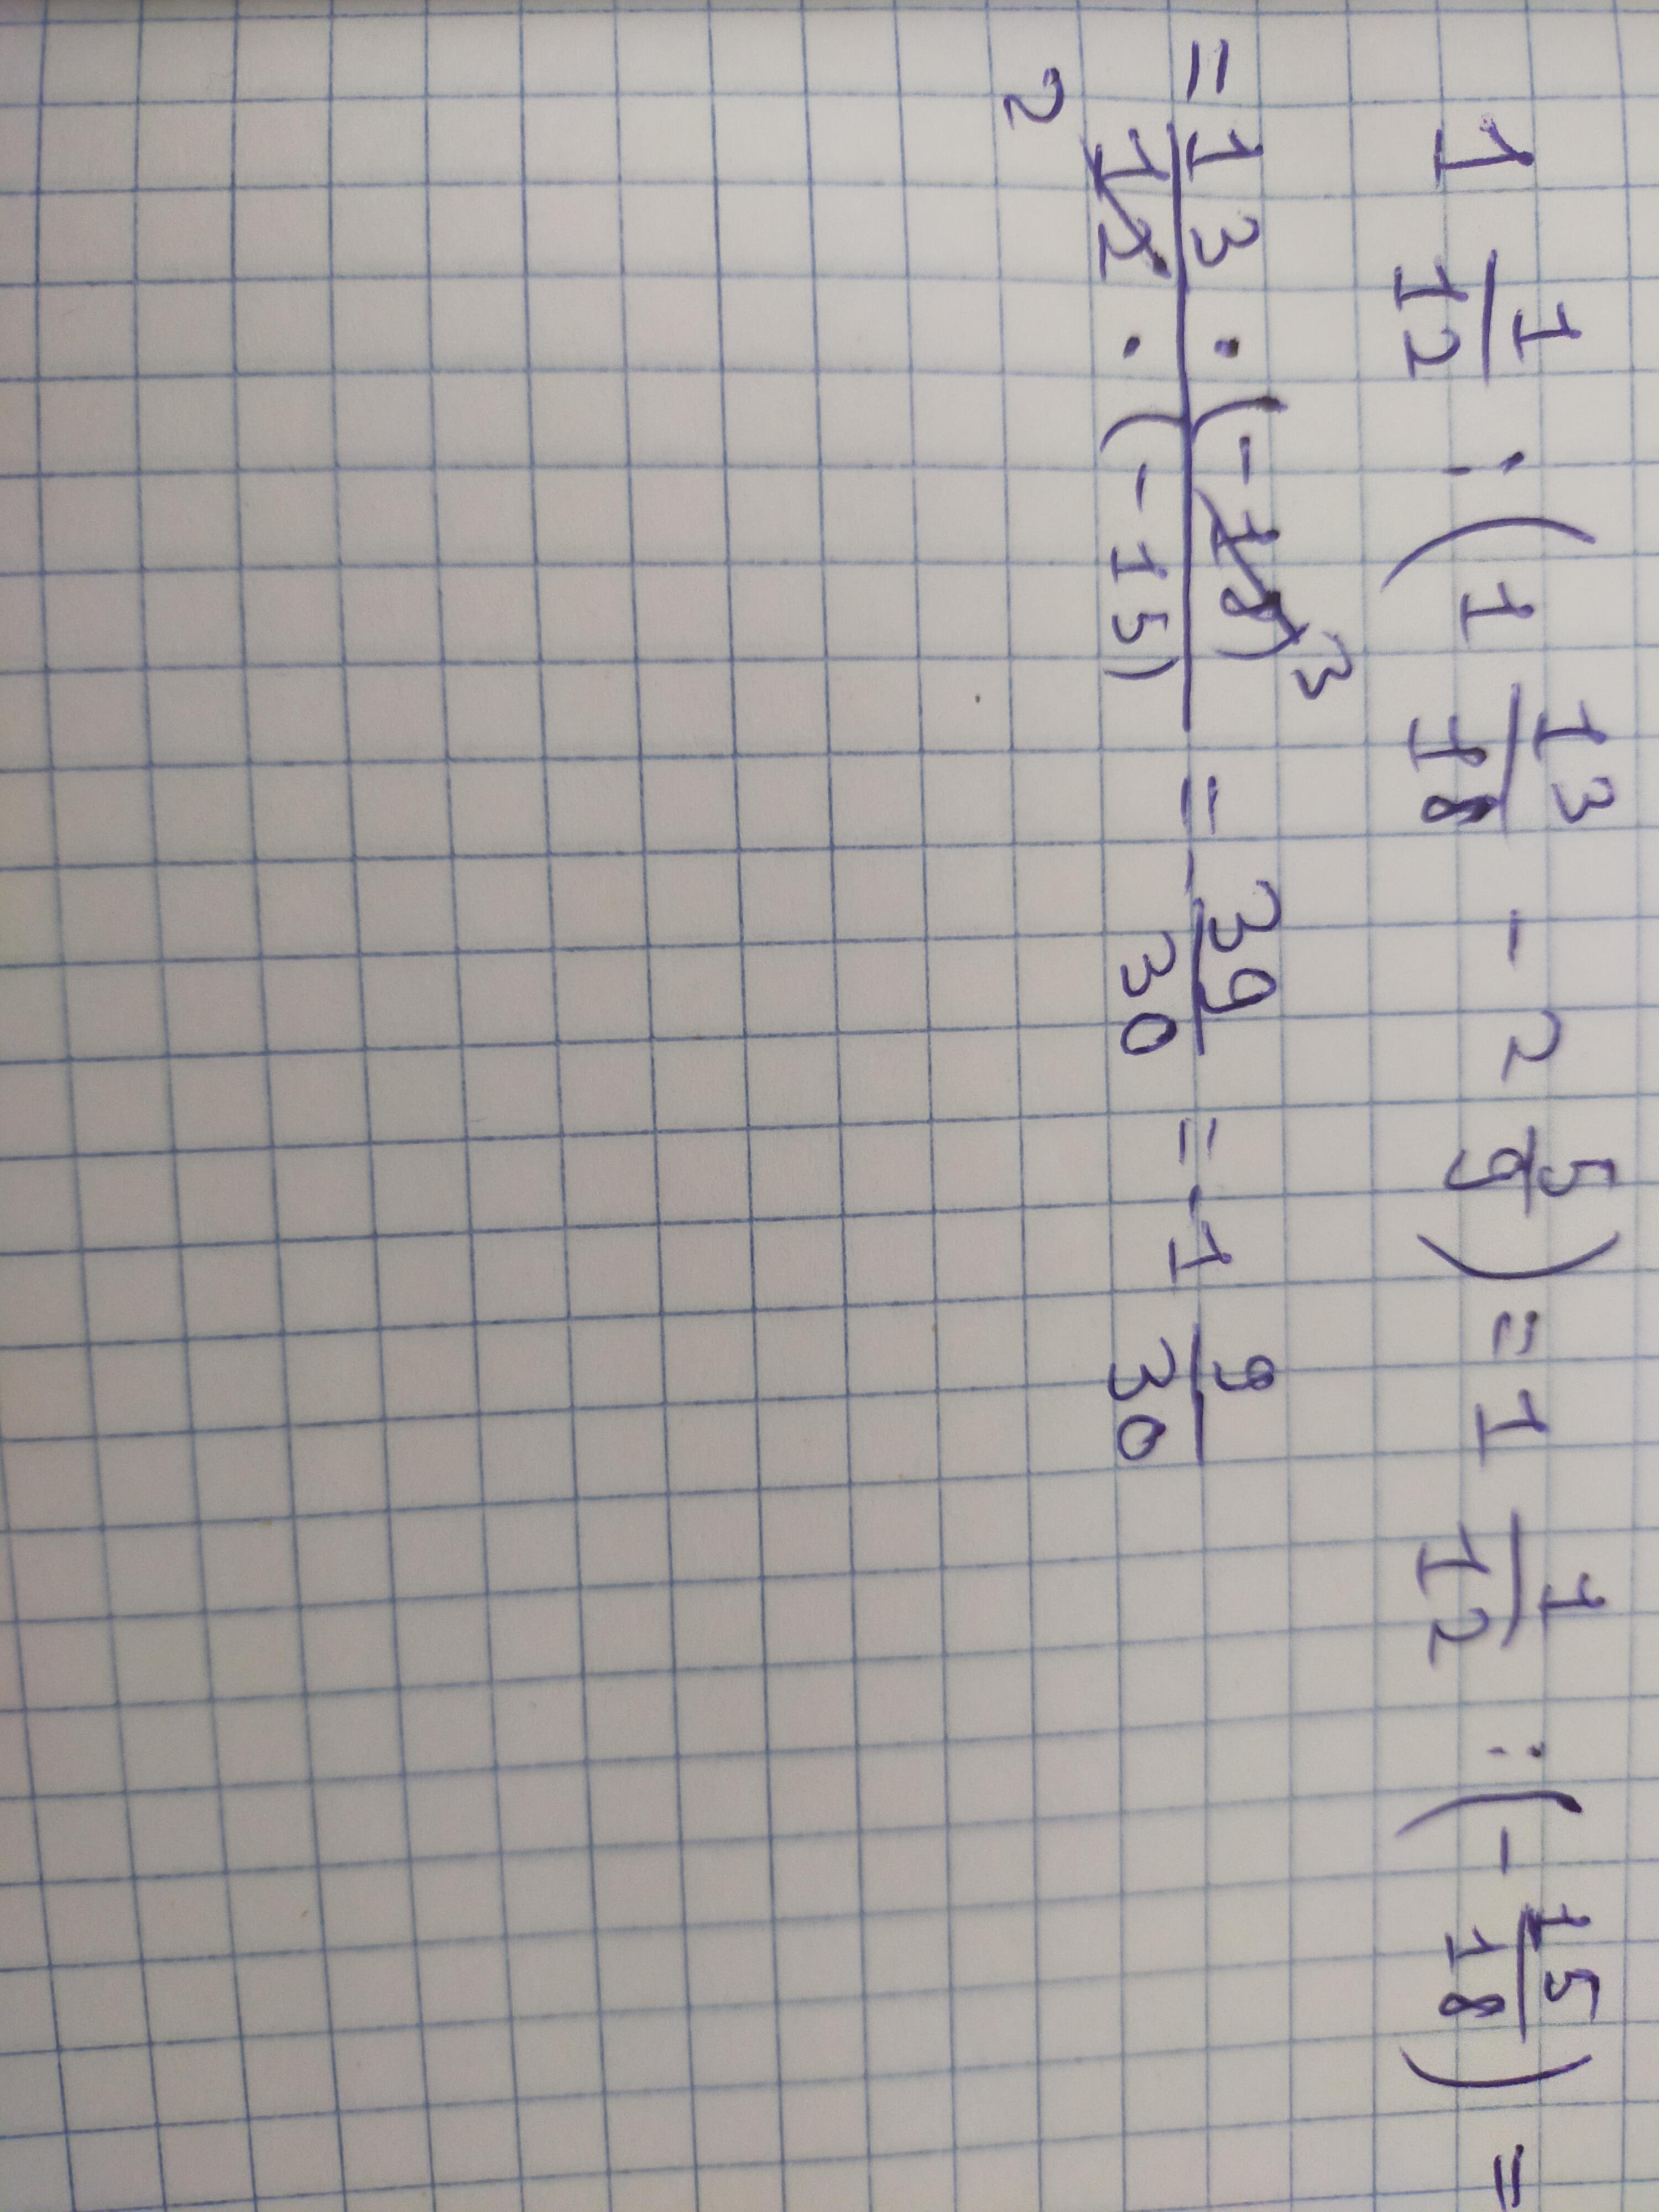 1 1/12 : (1 13/18 - 2 5/9) = 1 1/12 : (- 15/18) =
= 13 · (-18) 3 / 12 · (-15) 2 = - 39/30 = -1 9/30